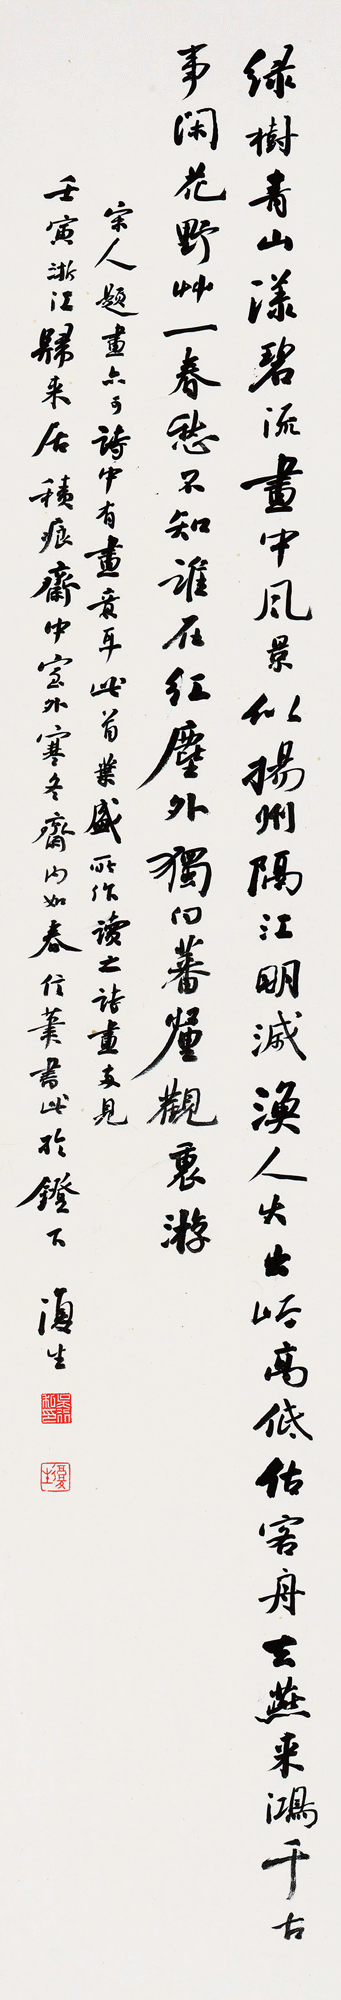 绿樹青山漾碧流畫中风景似揚州隔江明滅漁人火出峪高低估客舟去燕来鴻千古
事閑花野艸一春愁不知誰在紅塵外獨向蕃釐觀裏游
宋人題畫亦可詩中有畫意耳此首葉盛所作讀之詩畫見
壬寅浙江歸来居積痕齋中室外寒冬齋内如春信筆書此於鐙下 復生